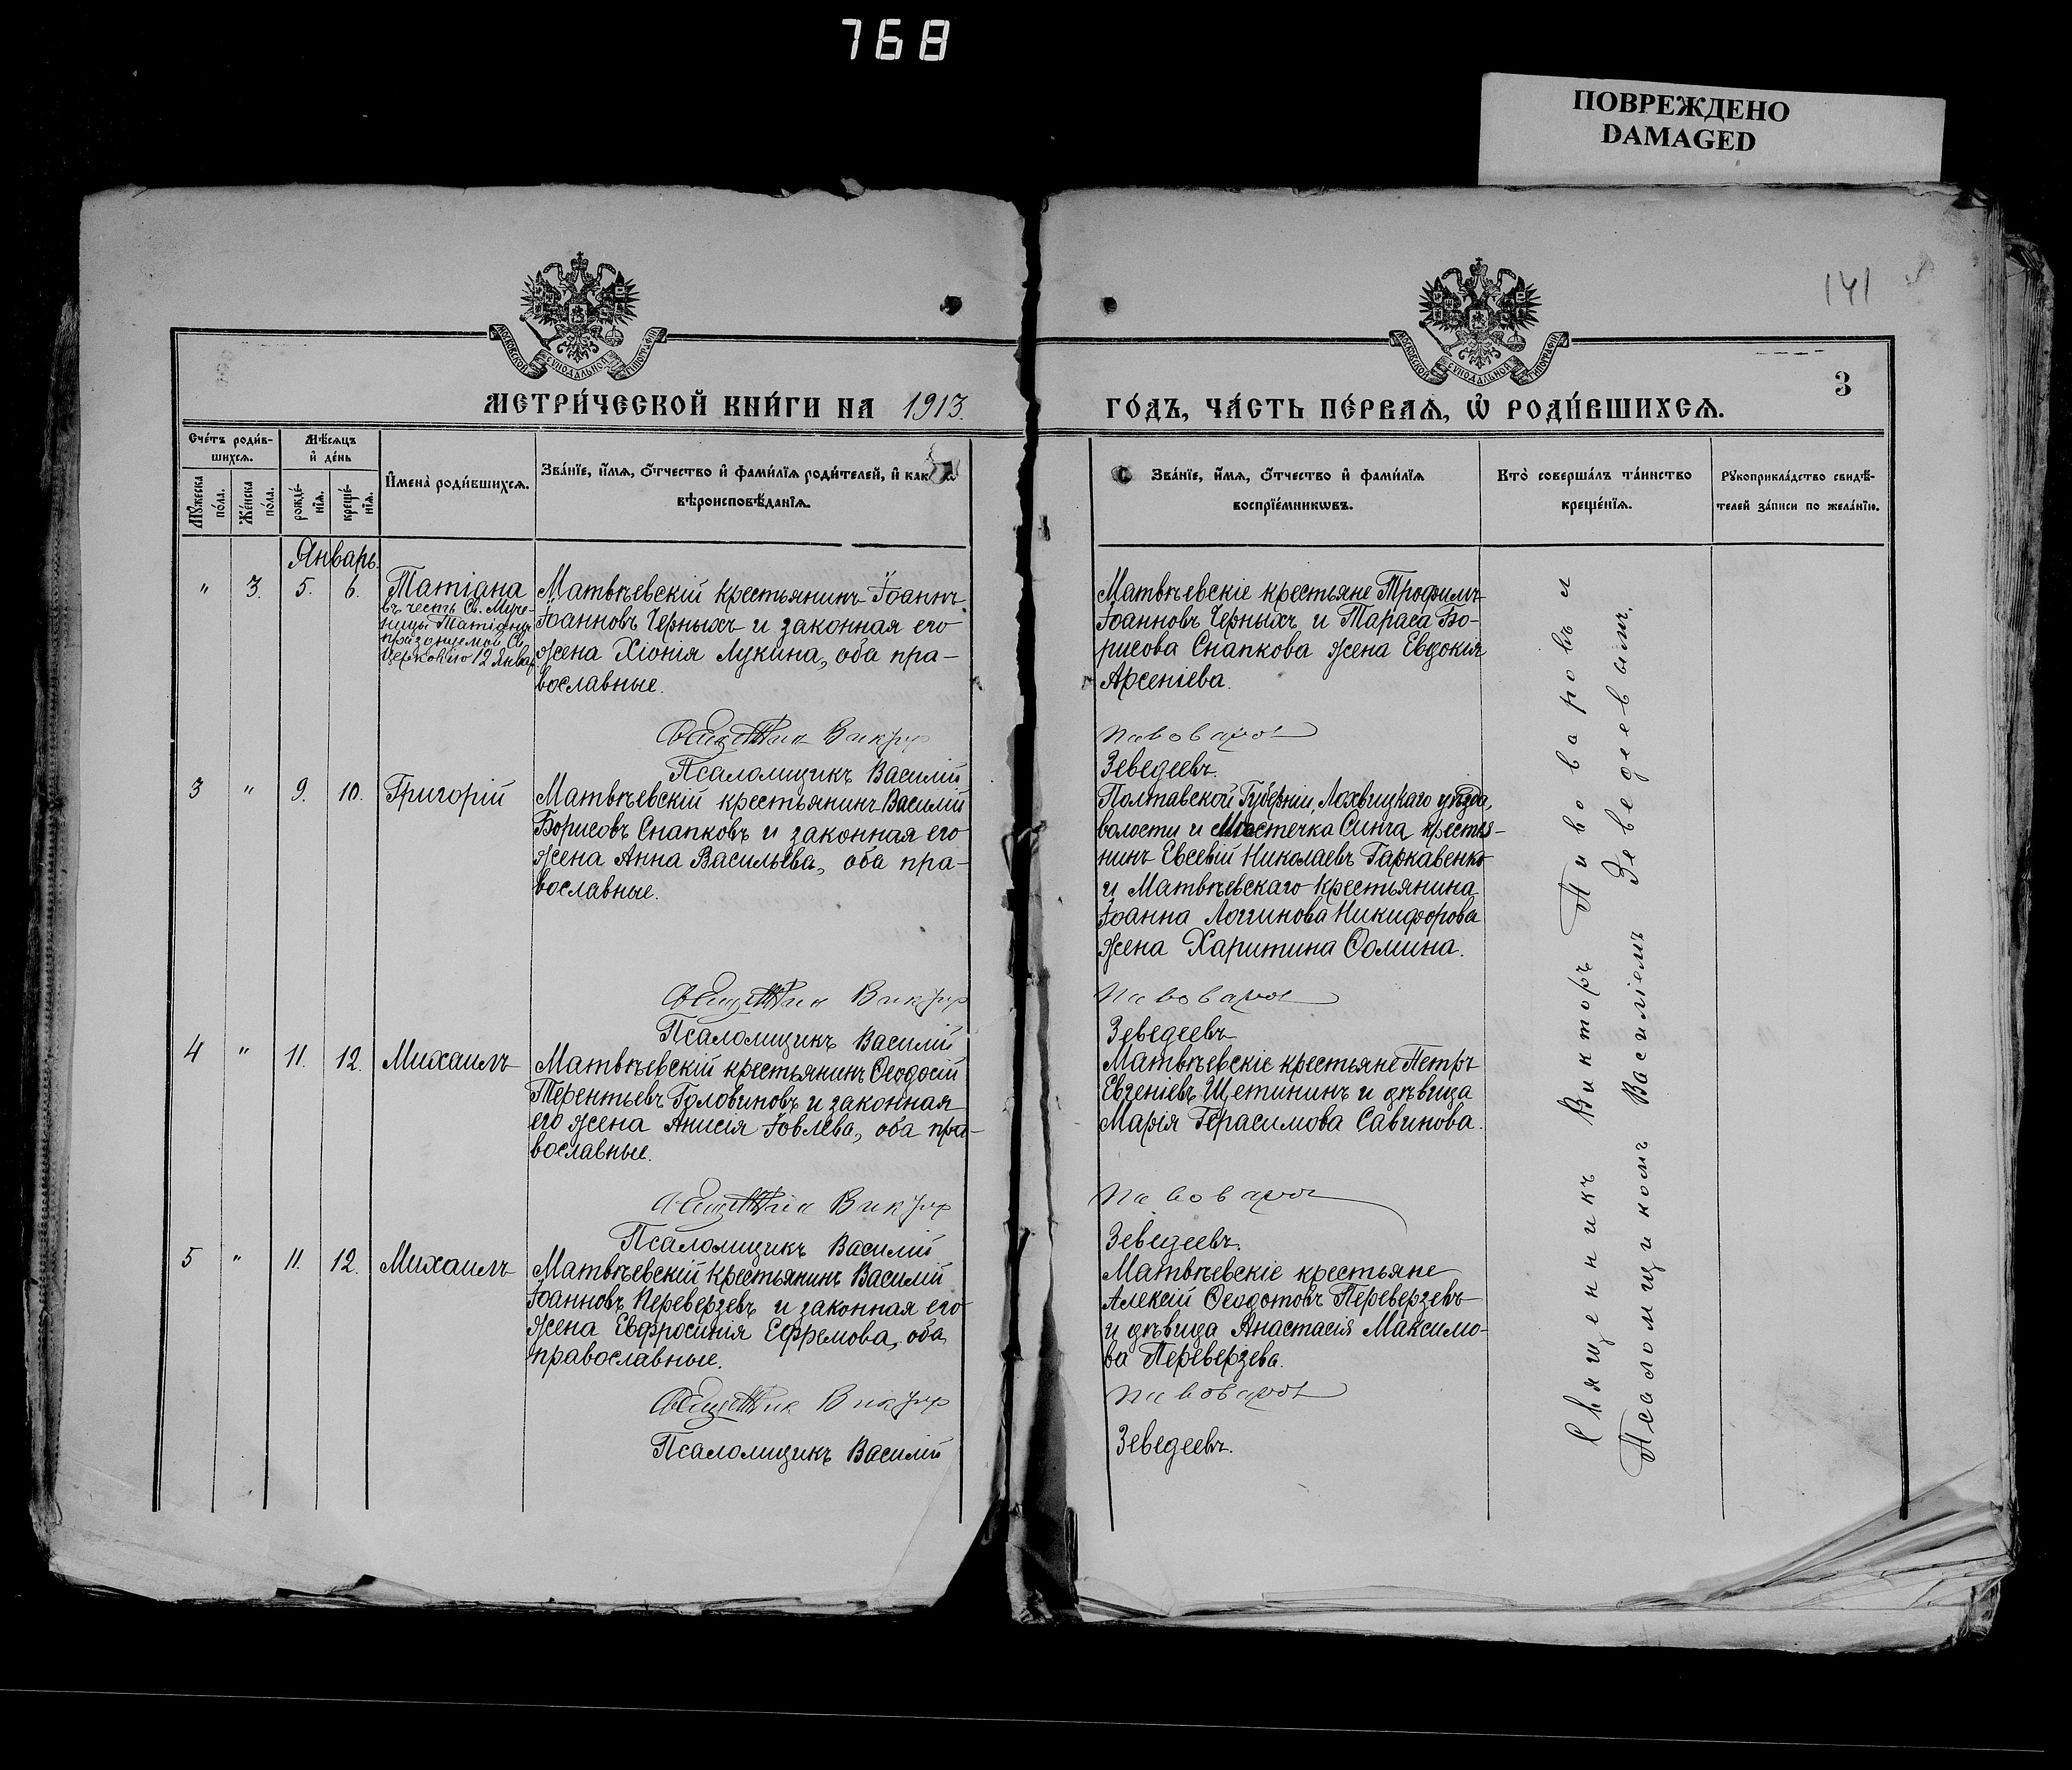 768
ПОВРЕЖДЕНО
DAMAGED
141
3
МОСКОВСКОЙ СѴНОДАЛЬНОЙ ТИПОГРАФІИ
МОСКОВСКОЙ СѴНОДАЛЬНОЙ ТИПОГРАФІИ
МЕТРИ́ЧЕСКОЙ КНИ́ГИ НА 1913.
ГО́ДЪ, ЧА́СТЬ ПЕ́РВАѦ, Ѡ҆ РОДИ́ВШИХСѦ.
Сче́тъ роди́в-
шихсѧ.
Мꙋ́жеска
по́ла.
Же́нска
по́ла.
Мѣ́сѧцъ
и҆ де́нь
рожде́-
нїѧ.
креще́-
нїѧ.
И҆мена̀ роди́вшихсѧ.
Зва́нїе, и҆́мѧ, ѻ҆́тчество и҆ фами́лїѧ роди́телей, и҆ как
вѣроисповѣ́данїѧ.
Зва́нїе, и҆́мѧ, ѻ҆́тчество и҆ фами́лїѧ
воспрїе́мникѡвъ.
Кто̀ соверша́лъ та́инство
креще́нїѧ.
Рꙋкоприкла́дство свидѣ́-
телей за́писи по жела́нїю.
Январь.
" 3. 5. 6. Татіана
въ честь Св. Муче-
ницы Татіаны
празднуемой Св.
Церковію 12 Январ
Матвѣевскій крестьянинъ Іоаннъ
Іоанновъ Черныхъ и законная его
жена Хіонія Лукина, оба пра-
вославные.
Священникъ Викторъ
Псаломщикъ Василій
Матвѣевскіе крестьяне Трофимъ
Іоанновъ Черныхъ и Тараса Бо-
рисова Снапкова жена Евдокія
Арсеніева.
Пивоваровъ
Зеведеевъ.
3 " 9. 10. Григорій
Матвѣевскій крестьянинъ Василій
Борисовъ Снапковъ и законная его
жена Анна Васильева, оба пра-
вославные.
Священникъ Викторъ
Псаломщикъ Василій
Полтавской Губерніи, Лохвицкаго уѣзда,
волости и Мѣстечка Синча крестья-
нинъ Евсевій Николаевъ Гаркавенко
и Матвѣевскаго крестьянина
Іоанна Логгинова Никифорова
жена Харитина Ѳомина.
Пивоваровъ
Зеведеевъ
4 " 11. 12. Михаилъ
Матвѣевскій крестьянинъ Ѳеодосій
Терентьевъ Головиновъ и законная
его жена Анисія Іовлева, оба пра-
вославные.
Священникъ Викторъ
Псаломщикъ Василій
Матвѣевскіе крестьяне Петръ
Евгеніевъ Щетининъ и дѣвица
Марія Герасимова Савинова.
Пивоваровъ
Зеведеевъ.
5 " 11. 12. Михаилъ
Матвѣевскій крестьянинъ Василій
Іоанновъ Переверзевъ и законная его
жена Евфросинія Ефремова, оба
православные.
Священникъ Викторъ
Псаломщикъ Василій
Матвѣевскіе крестьяне
Алексій Ѳеодотовъ Переверзевъ
и дѣвица Анастасія Максимо-
ва Переверзева.
Пивоваровъ
Зеведеевъ.
Священникъ Викторъ Пивоваровъ и
Псаломщикомъ Василіемъ Зеведеевымъ.